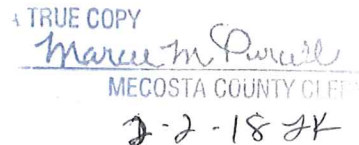 A TRUE COPY
Marcee M Purcell
MECOSTA COUNTY CLERK
2-2-18 JK